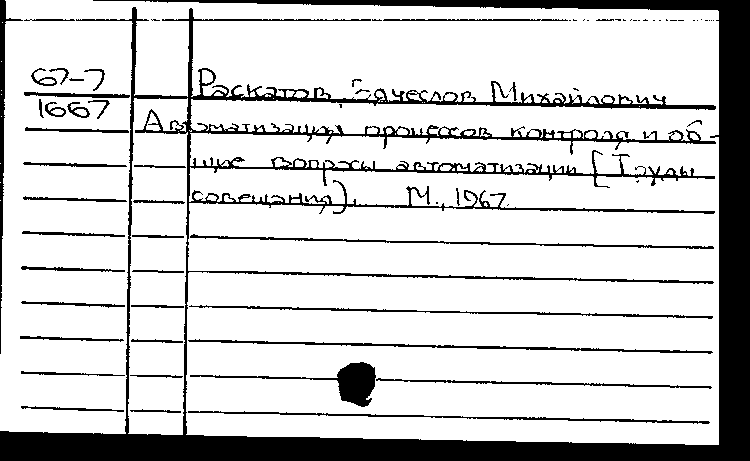 67-7
1667
Раскатов, Вячеслов Михайлович
Автоматизация процессов контроля и об-
щие вопросы автоматизации [Труды
совещания). М., 1967